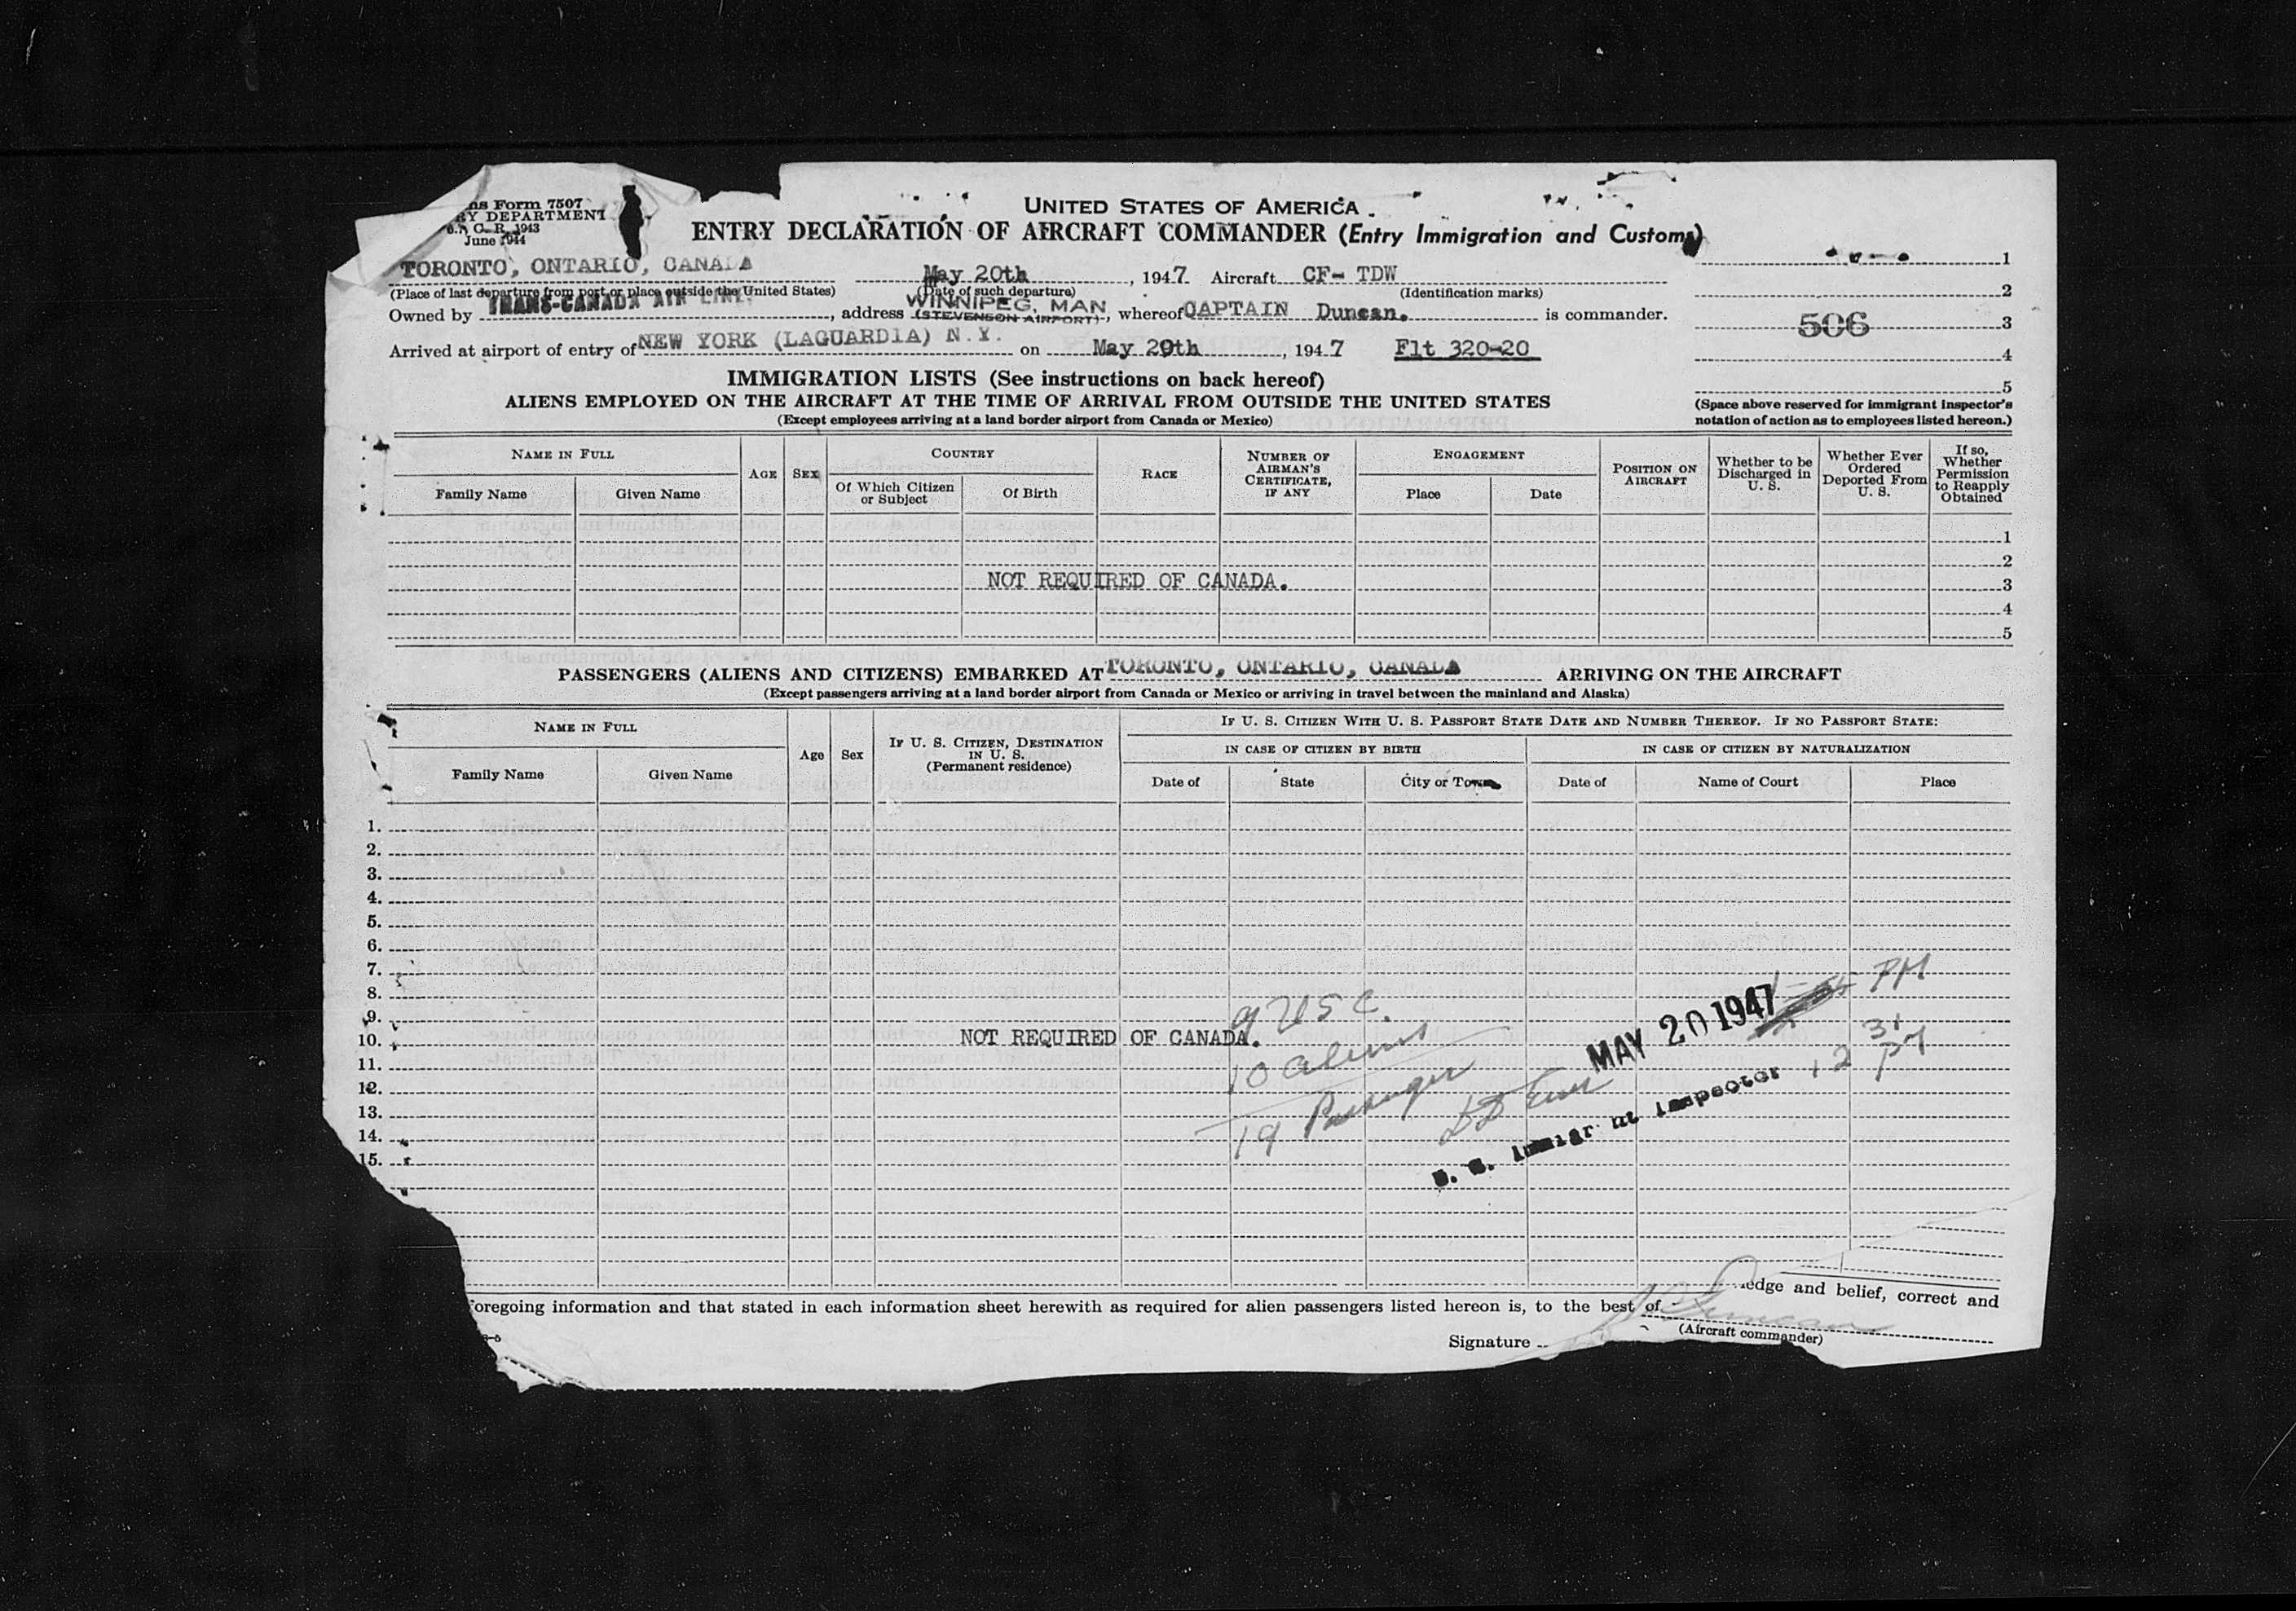 ns Form 7507
RY DEPARTMENT
C. R. 1943
June 1944
UNITED STATES OF AMERICA
ENTRY DECLARATION OF AIRCRAFT COMMANDER (Entry Immigration and Customs)
TORONTO, ONTARIO, CANADA May 20th, 1947 Aircraft CF- TDW
(Place of last departure from port or place outside the United States) (Date of such departure) (Identification marks)
Owned by TRANS-CANADA AIR LINE, address WINNIPEG, MAN (STEVENSON AIRPORT), whereof CAPTAIN Duncan. is commander.
Arrived at airport of entry of NEW YORK (LAGUARDIA) N.Y. on May 20th, 1947 Flt 320-20
1
2
506 3
4
5
(Space above reserved for immigrant inspector's notation of action as to employees listed hereon.)
IMMIGRATION LISTS (See instructions on back hereof)
ALIENS EMPLOYED ON THE AIRCRAFT AT THE TIME OF ARRIVAL FROM OUTSIDE THE UNITED STATES
(Except employees arriving at a land border airport from Canada or Mexico)
NAME IN FULL
Family Name Given Name
AGE SEX
COUNTRY
Of Which Citizen or Subject Of Birth
RACE
NUMBER OF AIRMAN'S CERTIFICATE, IF ANY
ENGAGEMENT
Place Date
POSITION ON AIRCRAFT
Whether to be Discharged in U. S.
Whether Ever Ordered Deported From U. S.
If so, Whether Permission to Reapply Obtained
1
2
NOT REQUIRED OF CANADA. 3
4
5
PASSENGERS (ALIENS AND CITIZENS) EMBARKED AT TORONTO, ONTARIO, CANADA ARRIVING ON THE AIRCRAFT
(Except passengers arriving at a land border airport from Canada or Mexico or arriving in travel between the mainland and Alaska)
NAME IN FULL
Family Name Given Name
Age Sex
IF U. S. CITIZEN, DESTINATION IN U. S. (Permanent residence)
IF U. S. CITIZEN WITH U. S. PASSPORT STATE DATE AND NUMBER THEREOF. IF NO PASSPORT STATE:
IN CASE OF CITIZEN BY BIRTH IN CASE OF CITIZEN BY NATURALIZATION
Date of State City or Town Date of Name of Court Place
1.
2.
3.
4.
5.
6.
7.
8. PM
9. 9 USC. MAY 20 1947
10. NOT REQUIRED OF CANADA.
11. 10 aliens
12. 12 31 PM
13. 19 Passenger
14. U. S. Immigrant Inspector
15.
oregoing information and that stated in each information sheet herewith as required for alien passengers listed hereon is, to the best of ledge and belief, correct and
Signature Duncan
(Aircraft commander)